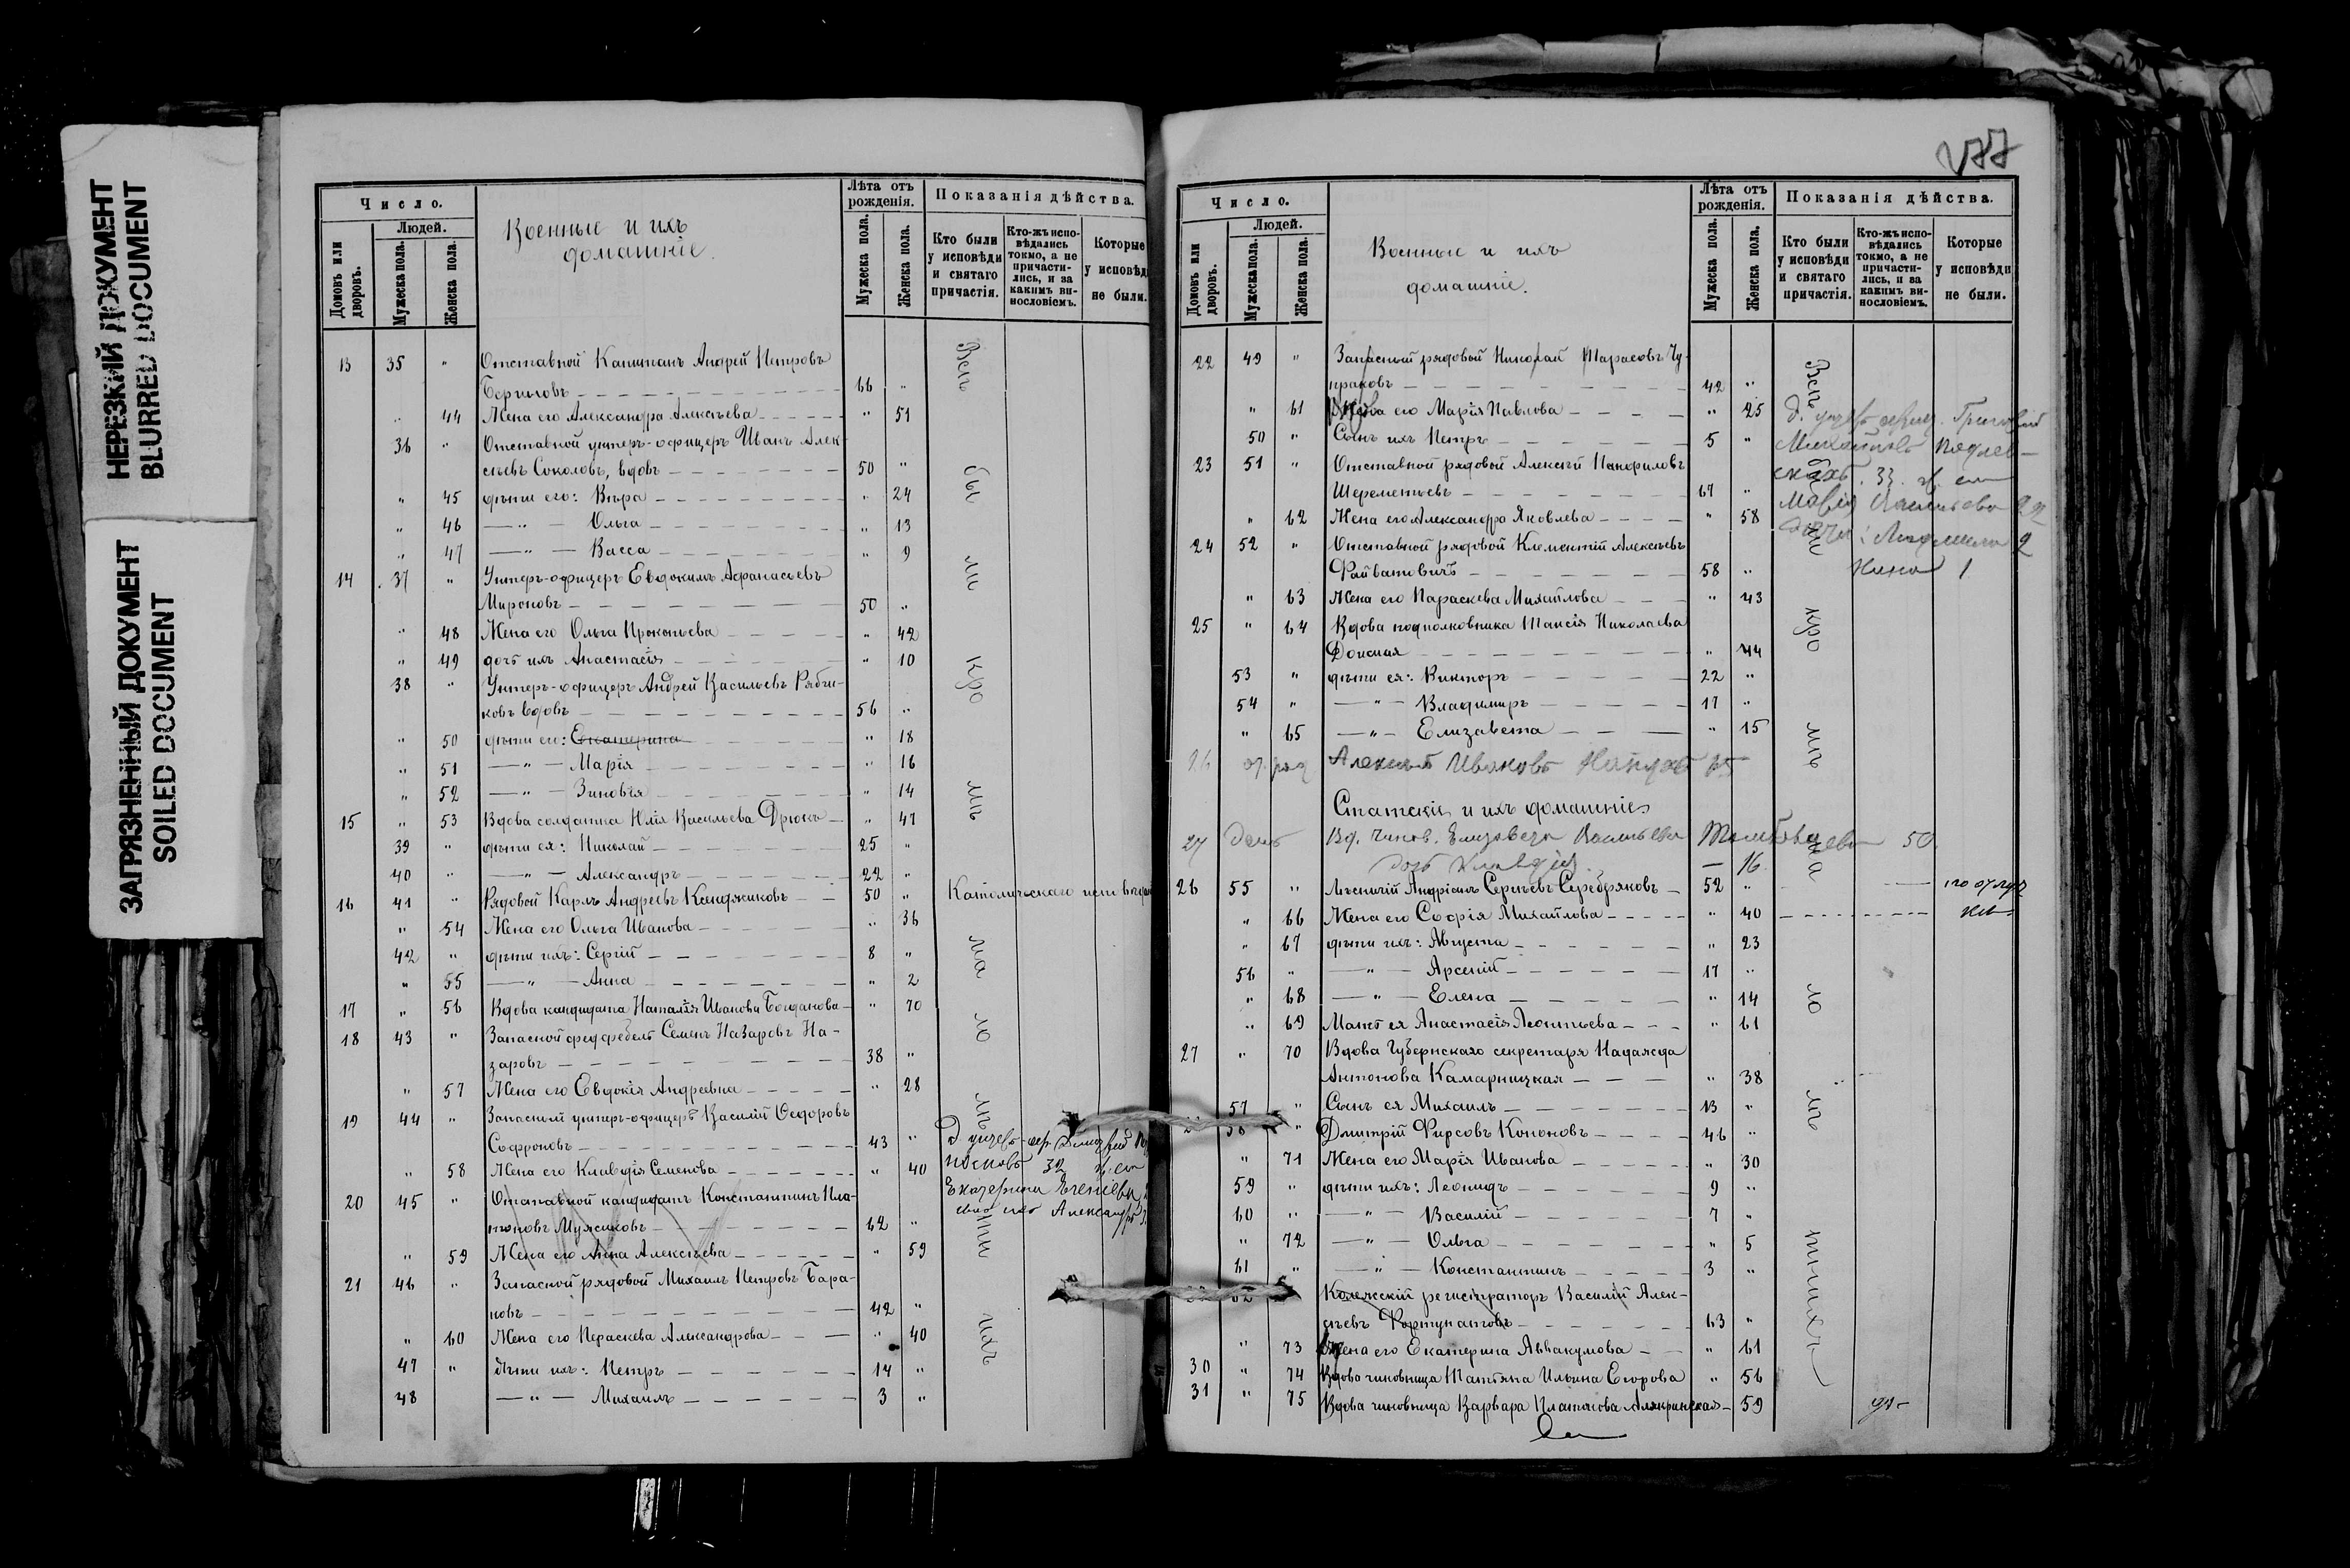 НЕРЕЗКИЙ ДОКУМЕНТ
BLURRED DOCUMENT
ЗАГРЯЗНЕННЫЙ ДОКУМЕНТ
SOILED DOCUMENT
Число.
Людей.
Домовъ или дворовъ.
Мужеска пола.
Женска пола.
Военные и ихъ
домашніе.
Лѣта отъ рожденія.
Мужеска пола.
Женска пола.
Показанія дѣйства.
Кто были у исповѣди и святаго причастія.
Кто-жъ исповѣдались токмо, а не причастились, и за какимъ винословіемъ.
Которые у исповѣди не были.
13 35 " Отставной Капитанъ Андрей Петровъ
66 "
" 44 Жена его Александра Алексѣева " 51
36 " Отставной унтеръ-офицеръ Иванъ Алек-
сѣевъ Соколовъ, вдовъ 50 "
" 45 дѣти его: Вѣра " 24
" 46 —"— Ольга " 13
" 47 —"— Васса " 9
14 37 " Унтеръ-офицеръ Евдокимъ Афанасьевъ
Мироновъ 50 "
" 48 Жена его Ольга Прокопьева " 42
" 49 дочь ихъ Анастасія " 10
38 " Унтеръ-офицеръ Андрей Васильевъ Рябчи-
ковъ вдовъ 56 "
" 50 дѣти его: Екатерина " 18
" 51 —"— Марія " 16
" 52 —"— Зиновія " 14
15 " 53 Вдова солдатка Юлія Васильева Дрюкъ " 47
39 " дѣти ея: Николай 25 "
40 " —"— Александръ 22 "
16 41 " Рядовой Карлъ Андреевъ 50 " Католическаго
" 54 Жена его Ольга Иванова " 36
42 " дѣти ихъ: Сергій 8 "
" 55 —"— Анна " 2
17 " 56 Вдова кандидата Наталія Иванова Богданова " 70
18 43 " Запасной фельдфебель Семенъ Назаровъ На-
заровъ 38 "
" 57 Жена его Евдокія Андреевна " 28
19 44 " Запасный унтеръ-офицеръ Василій Ѳедоровъ
Софроновъ 43 "
" 58 Жена его Клавдія Семенова " 40
20 45 " Отставной кандидатъ Константинъ Пла-
тоновъ Мужиковъ 62 "
" 59 Жена его Анна Алексѣева " 59
21 46 " Запасной рядовой Михаилъ Петровъ Бара-
новъ 42 "
" 60 Жена его Параскева Александрова " 40
47 " дѣти ихъ: Петръ 14 "
48 —"— Михаилъ 3 "
Число.
Людей.
Домовъ или дворовъ.
Мужеска пола.
Женска пола.
Военные и ихъ
домашніе.
Лѣта отъ рожденія.
Мужеска пола.
Женска пола.
Показанія дѣйства.
Кто были у исповѣди и святаго причастія.
Кто-жъ исповѣдались токмо, а не причастились, и за какимъ винословіемъ.
Которые у исповѣди не были.
22 49 " Запасный рядовой Николай Тарасовъ Чу-
праковъ 42 "
" 61 Жена его Марія Павлова " 25
50 " Сынъ ихъ Петръ 5 "
23 51 " Отставной рядовой Алексѣй Панфиловъ
Шереметьевъ 67 "
" 62 Жена его Александра Яковлева " 58
24 52 " Отставной рядовой Клементій Алексѣевъ
58 "
" 63 Жена его Параскева Михайлова " 43
25 " 64 Вдова подполковника Таисія Николаева
Донская " 44
53 " дѣти ея: Викторъ 22 "
54 " —"— Владиміръ 17 "
" 65 —"— Елизавета " 15
26 Алексѣй Ивановъ
Статскіе и ихъ домашніе
27 Вд. чинов. Елизавета Васильева 50
дочь Клавдія — 16
26 55 " Лѣсничій Андріанъ Сергѣевъ Серебряковъ 52 "
" 66 Жена его Софія Михайлова " 40
" 67 дѣти ихъ: Августа " 23
56 " —"— Арсеній 17 "
" 68 —"— Елена " 14
" 69 Мать ея Анастасія Леонтьева " 61
27 " 70 Вдова Губернскаго секретаря Надежда
Антонова Камарницкая " 38
57 " Сынъ ея Михаилъ 13 "
58 " Дмитрій Фирсовъ Кононовъ 46 "
" 71 Жена его Марія Иванова " 30
59 " дѣти ихъ: Леонидъ 9 "
60 " —"— Василій 7 "
" 72 —"— Ольга " 5
61 " —"— Константинъ 3 "
62 Колежскій регистраторъ Василій Алек-
сѣевъ Фортунатовъ 63 "
" 73 Жена его Екатерина Аввакумова " 61
30 " 74 Вдова чиновница Татьяна Ильина Егорова " 56
31 " 75 Вдова чиновница Варвара Платонова 59